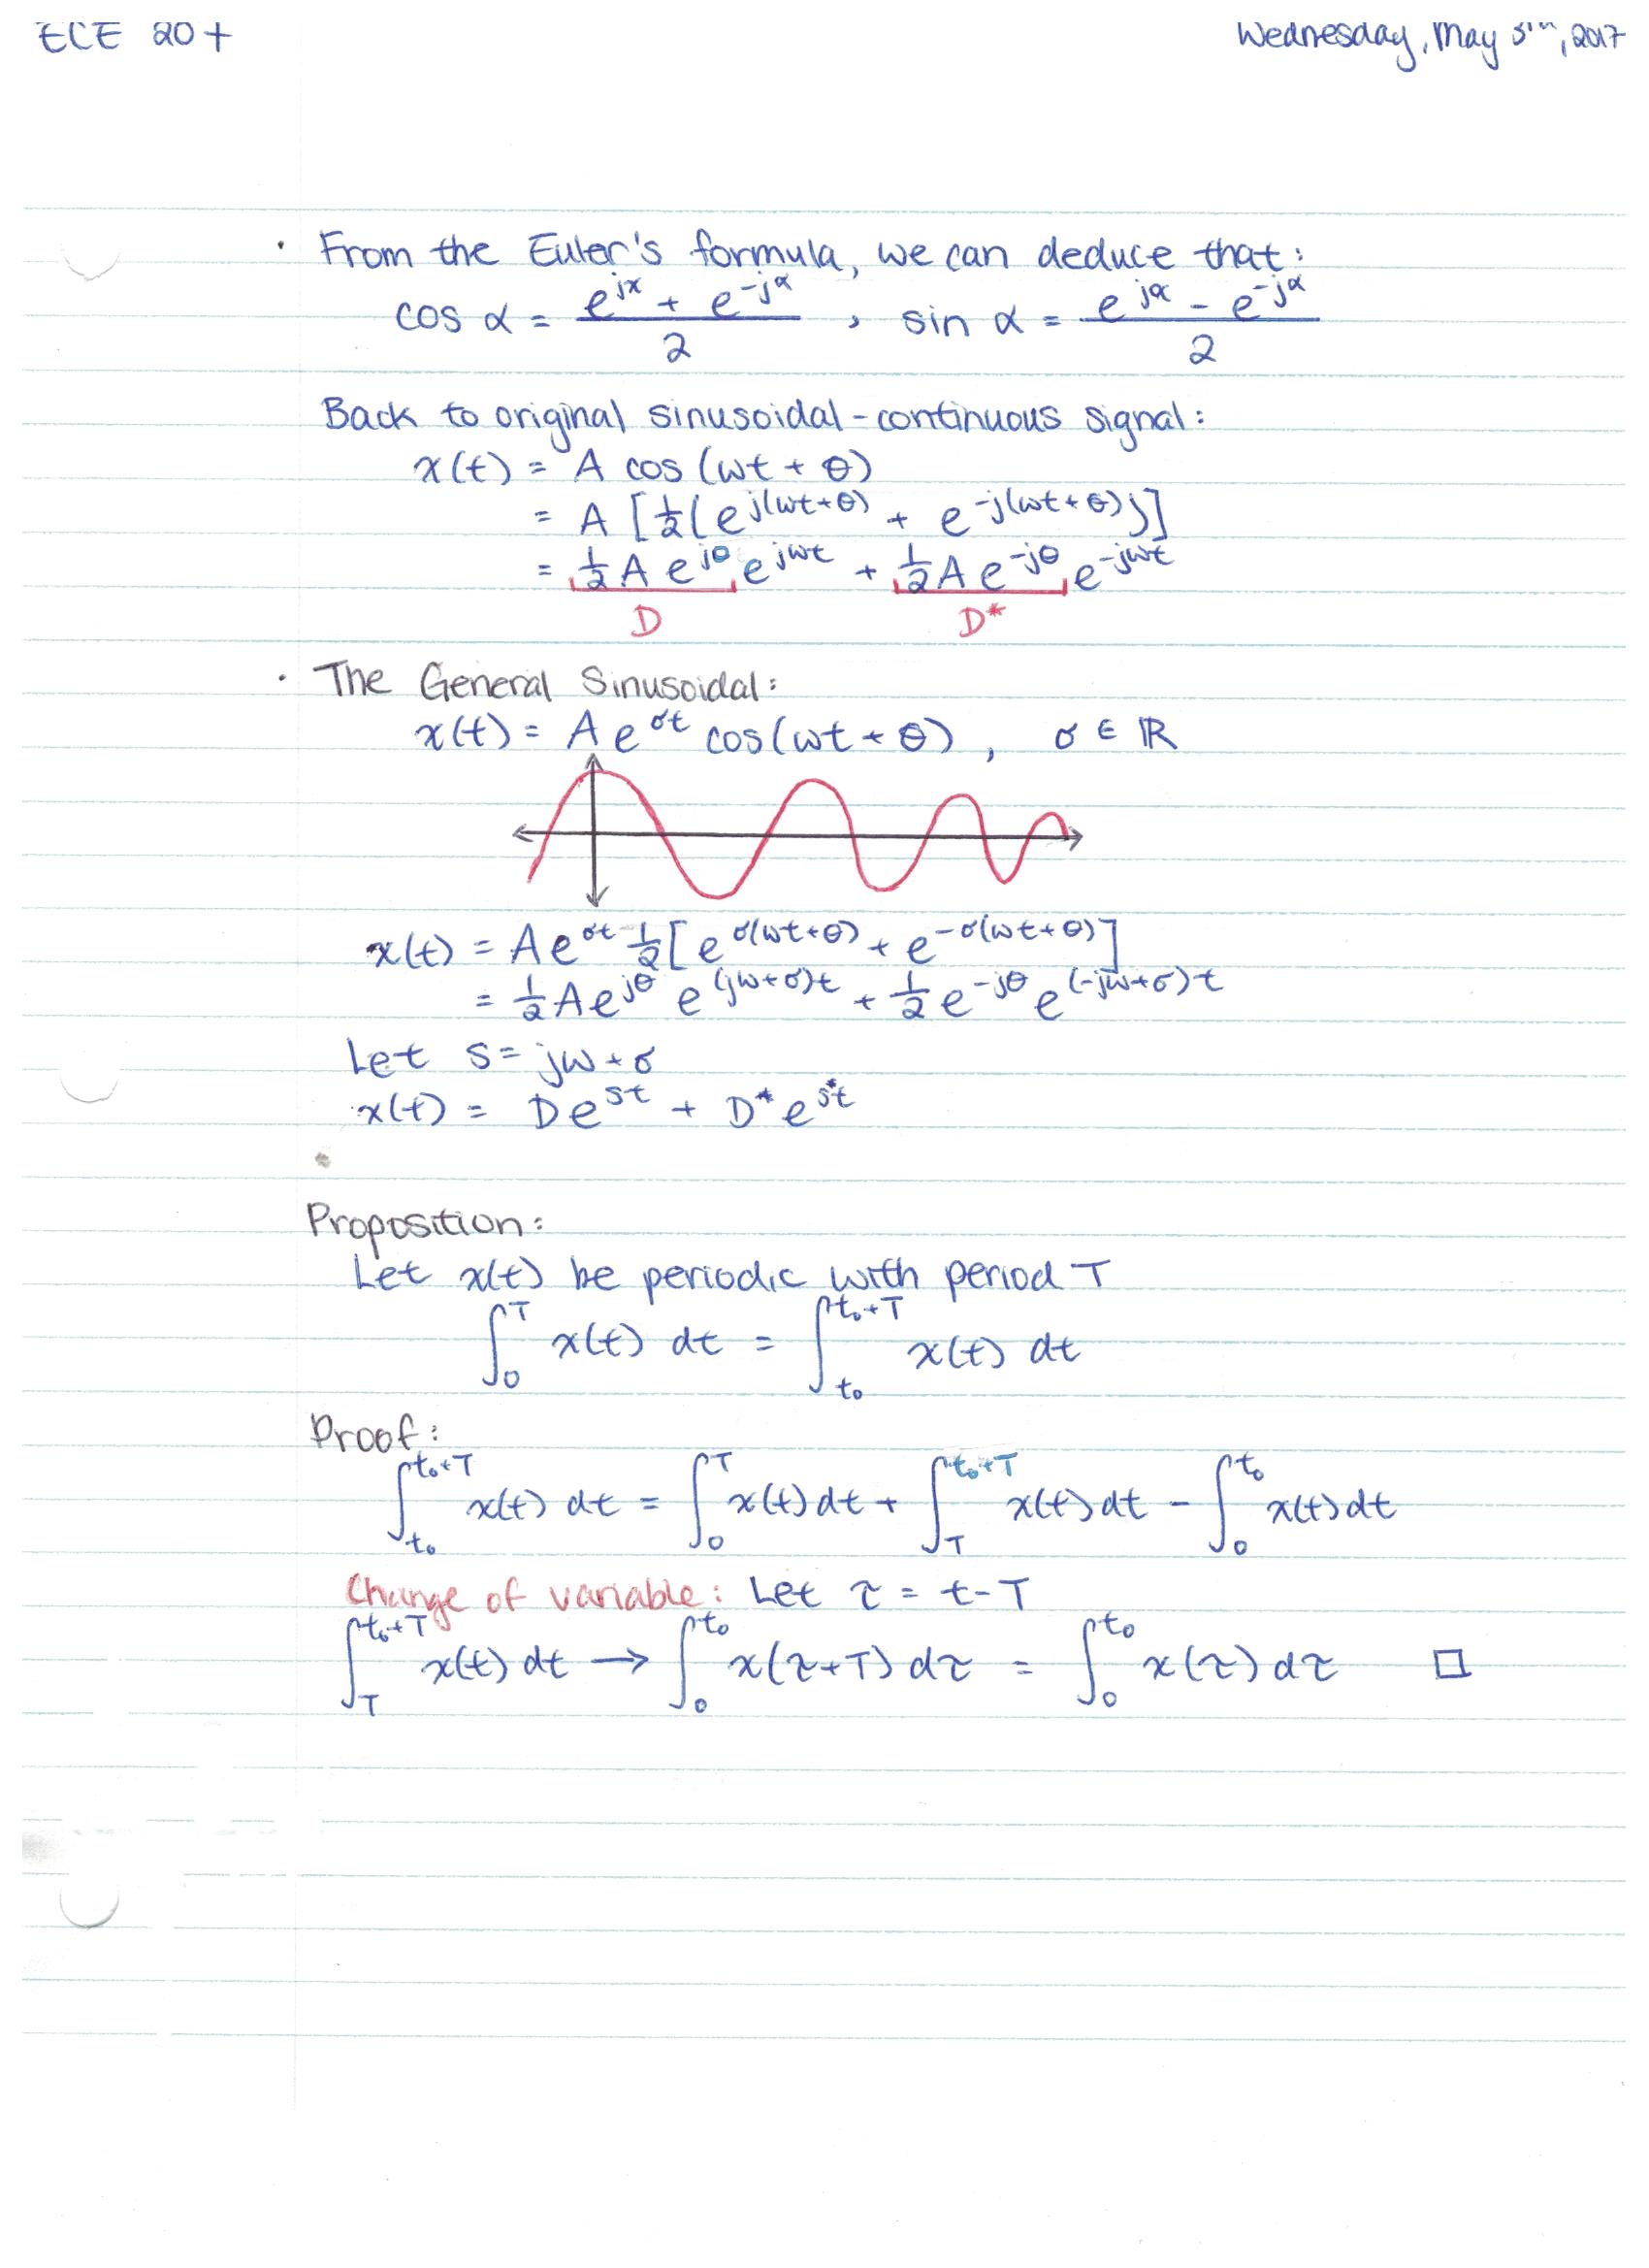 ECE 20+
Wednesday, May 3rd, 2017
· From the Euler's formula, we can deduce that:
cos α = (e^{jx} + e^{-jα})/2 , sin α = (e^{jα} - e^{-jα})/2
Back to original sinusoidal-continuous signal:
x(t) = A cos(ωt + θ)
= A [½(e^{j(ωt+θ)} + e^{-j(ωt+θ)})]
= ½Ae^{jθ} e^{jωt} + ½Ae^{-jθ} e^{-jωt}
D D*
· The General Sinusoidal:
x(t) = Ae^{σt} cos(ωt + θ), σ ∈ ℝ
x(t) = Ae^{σt} ½[e^{σ(ωt+θ)} + e^{-σ(ωt+θ)}]
= ½Ae^{jθ} e^{(jω+σ)t} + ½e^{-jθ} e^{(-jω+σ)t}
Let s = jω + σ
x(t) = De^{st} + D*e^{s*t}
Proposition:
Let x(t) be periodic with period T
∫_0^T x(t) dt = ∫_{t₀}^{t₀+T} x(t) dt
Proof:
∫_{t₀}^{t₀+T} x(t) dt = ∫_0^T x(t) dt + ∫_T^{t₀+T} x(t) dt - ∫_0^{t₀} x(t) dt
Change of variable: Let τ = t-T
∫_T^{t₀+T} x(t) dt → ∫_0^{t₀} x(τ+T) dτ = ∫_0^{t₀} x(τ) dτ □